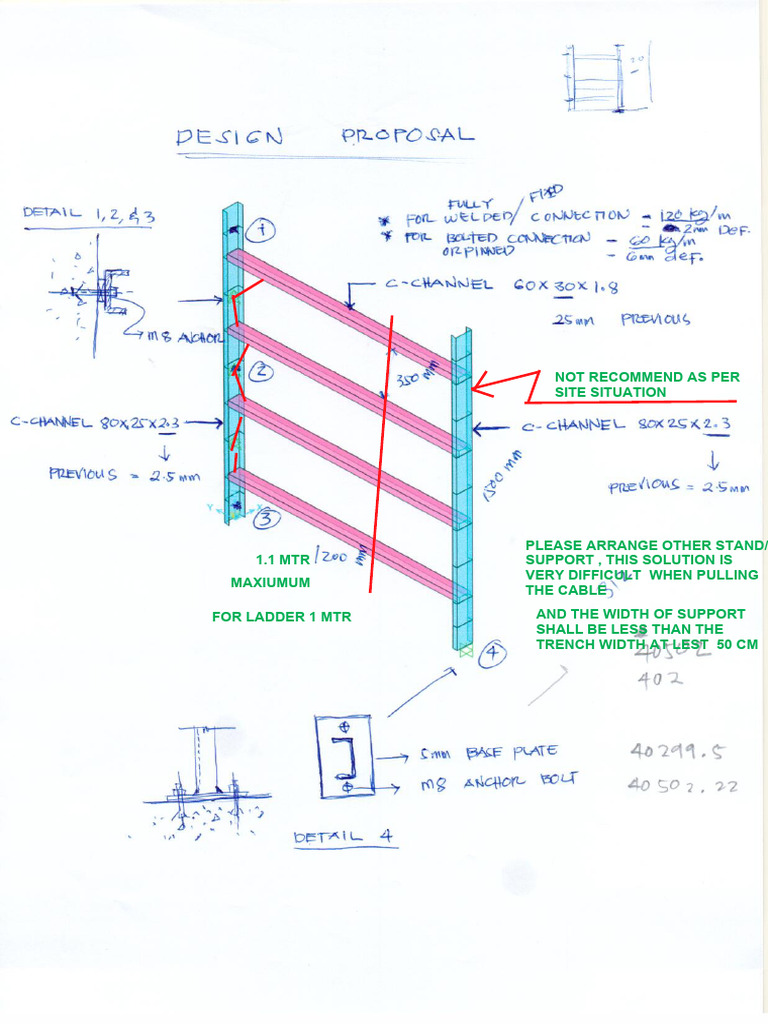 DESIGN PROPOSAL
DETAIL 1, 2, & 3
1
FULLY
FIXED
* FOR WELDED/ CONNECTION - 120 kg/m
- 2mm DEF.
* FOR BOLTED CONNECTION - 60 kg/m
OR PINNED - 6mm def.
C-CHANNEL 60 X 30 X 1.8
25mm PREVIOUS
M8 ANCHOR
350 mm
2
NOT RECOMMEND AS PER
SITE SITUATION
C-CHANNEL 80X25X2.3
PREVIOUS = 2.5mm
C-CHANNEL 80X25X2.3
PREVIOUS = 2.5mm
1500 mm
Y X
3
1200 mm
1.1 MTR
MAXIUMUM
FOR LADDER 1 MTR
PLEASE ARRANGE OTHER STAND/
SUPPORT , THIS SOLUTION IS
VERY DIFFICULT WHEN PULLING
THE CABLE
AND THE WIDTH OF SUPPORT
SHALL BE LESS THAN THE
TRENCH WIDTH AT LEST 50 CM
4
40502
402
5mm BASE PLATE
M8 ANCHOR BOLT
40299.5
40502.22
DETAIL 4